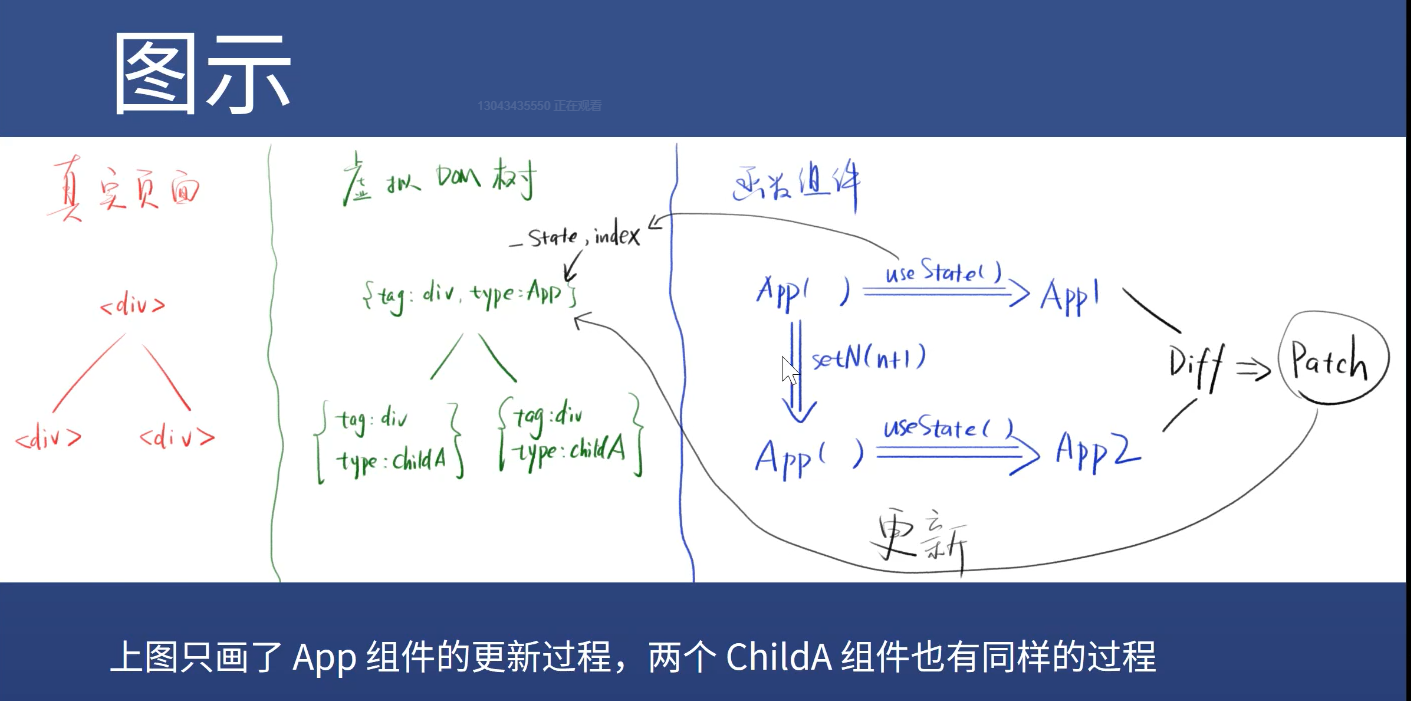 图示
13043435550 正在观看
真实页面
<div>
<div> <div>
虚拟 DOM 树
_State, index
{tag: div, type: App}
{tag: div type: childA} {tag: div type: childA}
函数组件
App( ) useState() App1
setN(n+1)
App( ) useState() App2
Diff ⇒ Patch
更新
上图只画了 App 组件的更新过程，两个 ChildA 组件也有同样的过程